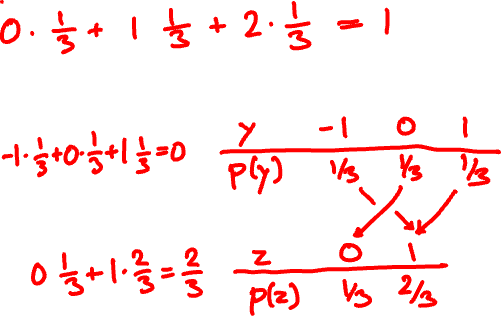 0 · 1/3 + 1 1/3 + 2 · 1/3 = 1
-1 · 1/3 + 0 · 1/3 + 1 1/3 = 0
y -1 0 1
p(y) 1/3 1/3 1/3
0 1/3 + 1 · 2/3 = 2/3
z 0 1
p(z) 1/3 2/3